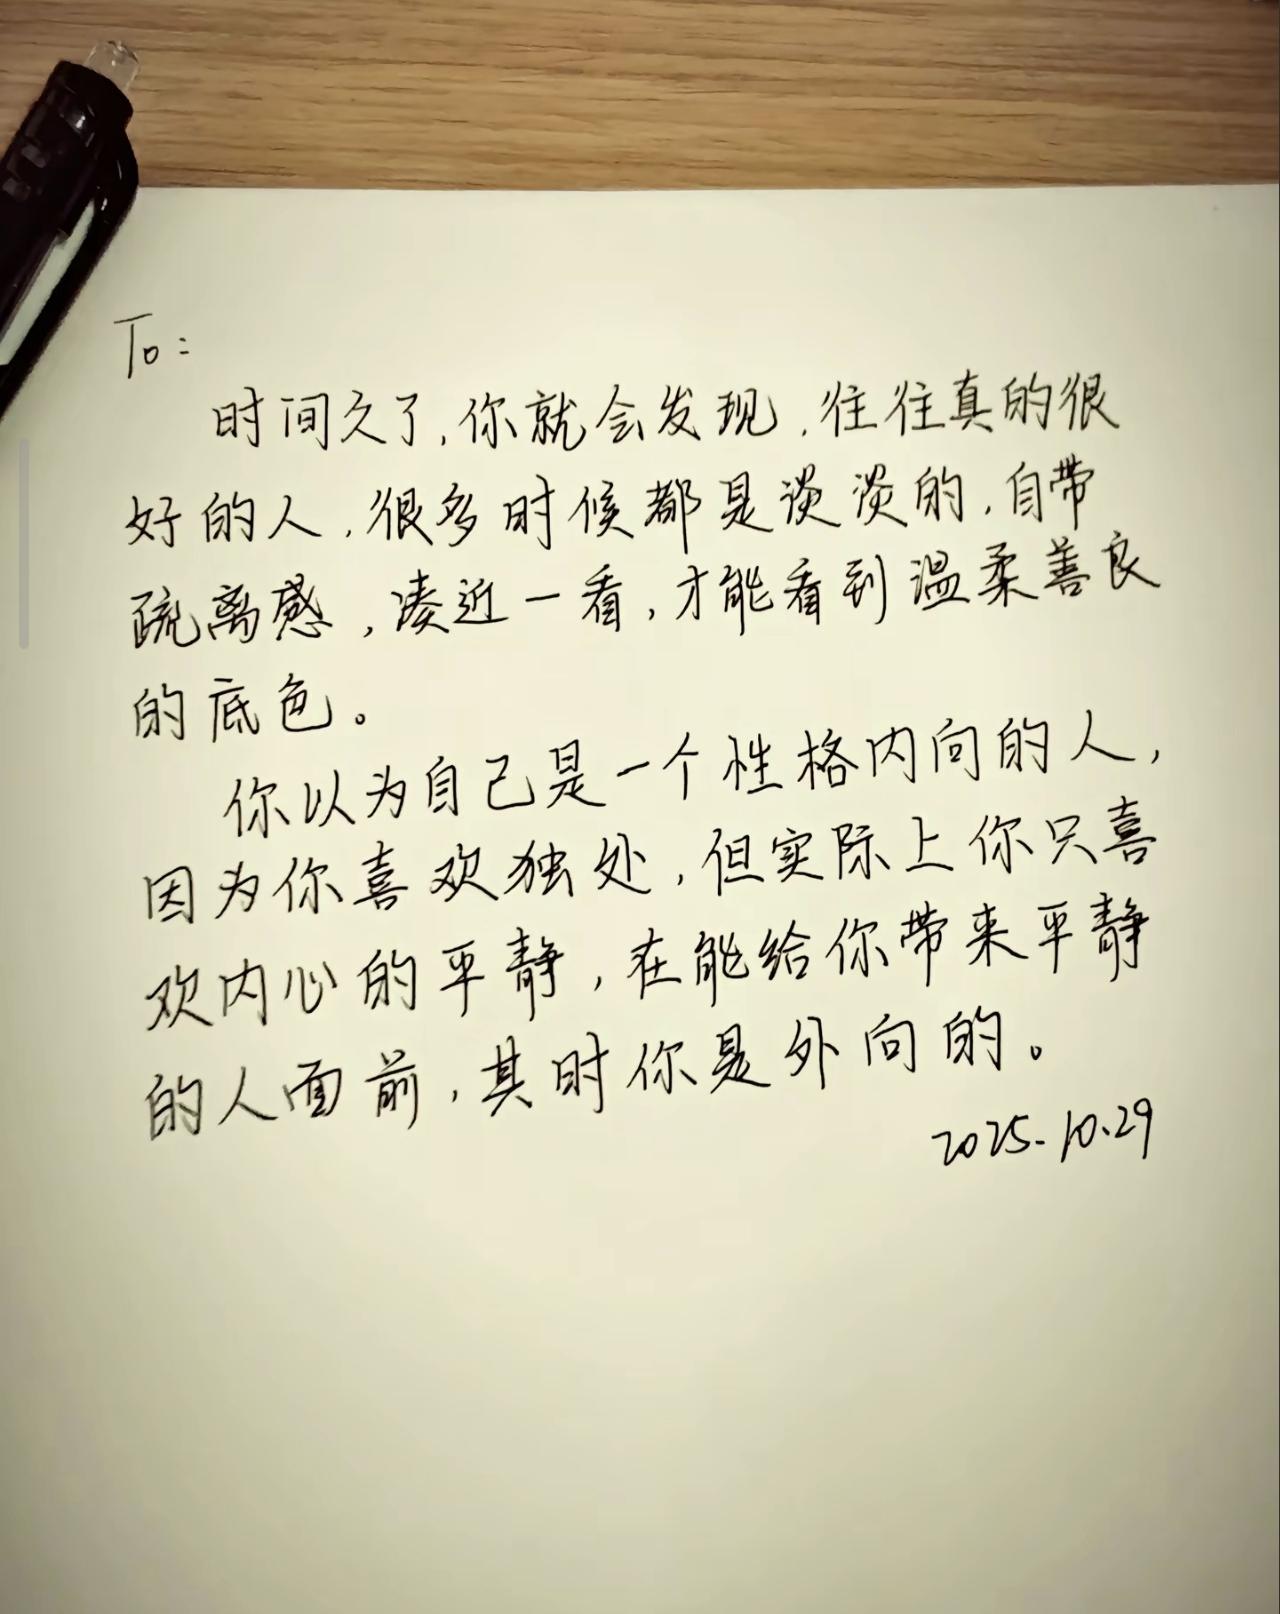 To:
时间久了,你就会发现,往往真的很
好的人,很多时候都是淡淡的,自带
疏离感,凑近一看,才能看到温柔善良
的底色。
你以为自己是一个性格内向的人,
因为你喜欢独处,但实际上你只喜
欢内心的平静,在能给你带来平静
的人面前,其时你是外向的。
2025.10.29